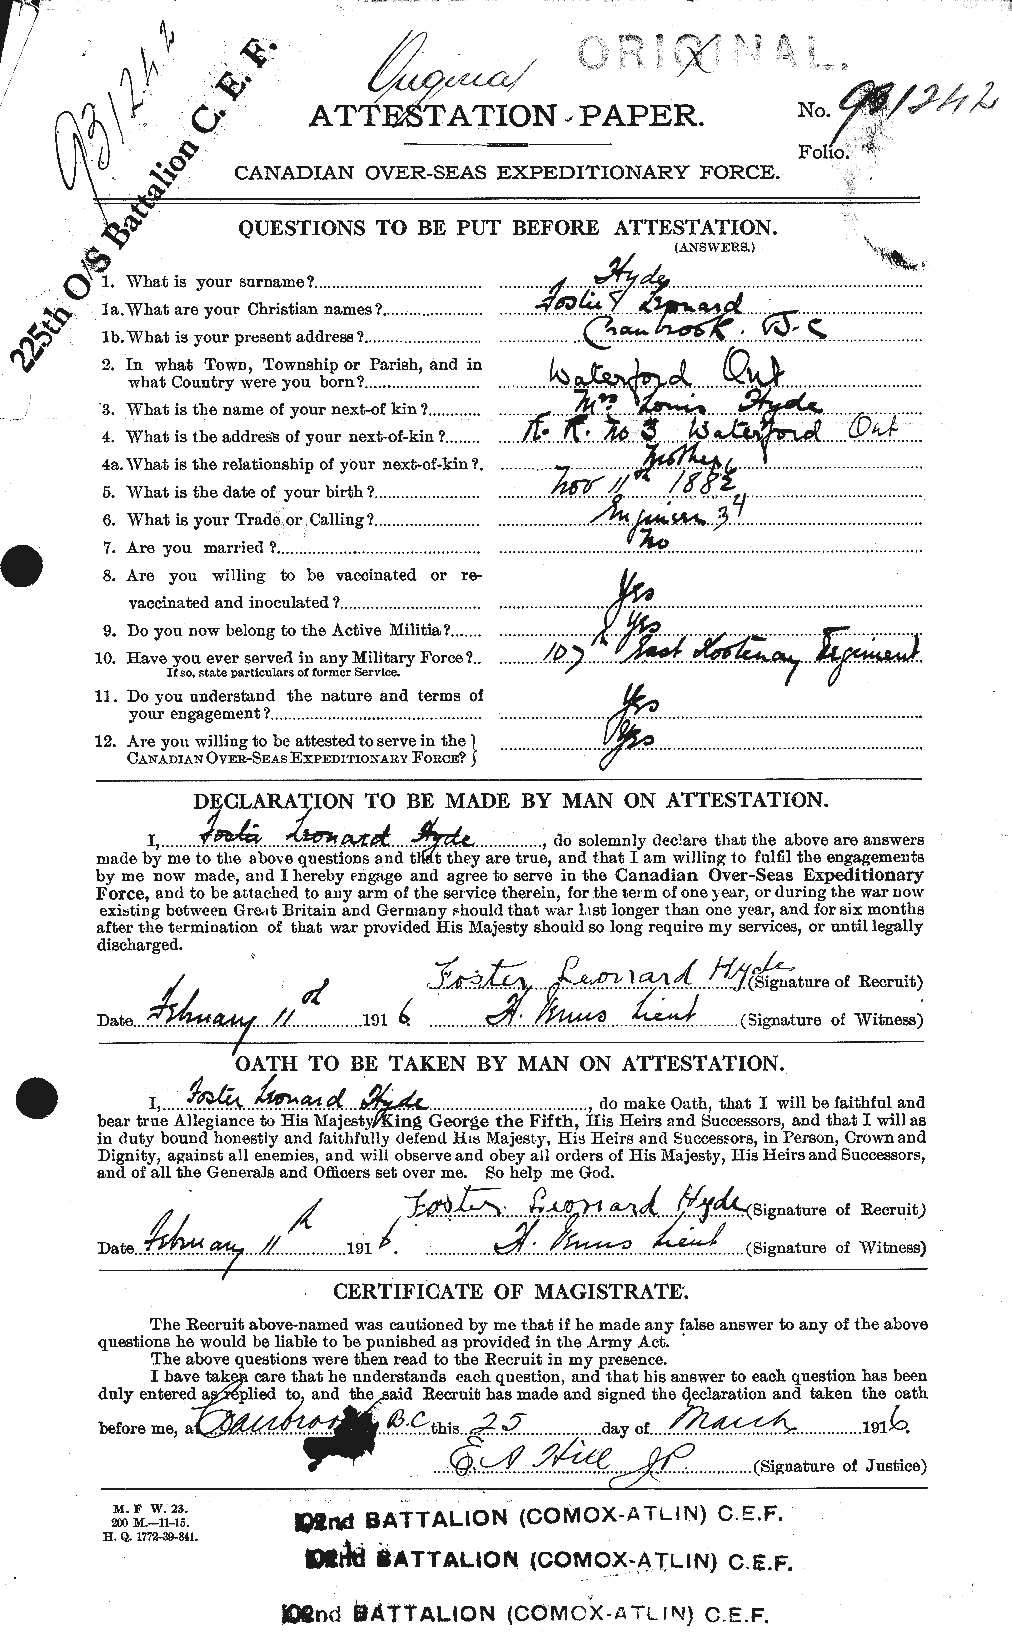 931242
225th O/S Battalion C. E. F.
Original
ORIGINAL.
ATTESTATION PAPER.
No. 931242
Folio.
CANADIAN OVER-SEAS EXPEDITIONARY FORCE.
QUESTIONS TO BE PUT BEFORE ATTESTATION.
(ANSWERS.)
1. What is your surname?........ Hyde
1a. What are your Christian names?........ Foster Leonard
1b. What is your present address?........ Cranbrook. B-C
2. In what Town, Township or Parish, and in
what Country were you born?........ Waterford Ont
3. What is the name of your next-of kin?........ Mrs Louis Hyde
4. What is the address of your next-of-kin?........ R. R. No 3 Waterford Ont
4a. What is the relationship of your next-of-kin?. Mother
5. What is the date of your birth?........ Nov 11th 1882
6. What is your Trade or Calling?........ Engineer 34
7. Are you married?........ No
8. Are you willing to be vaccinated or re-
vaccinated and inoculated?........ Yes
9. Do you now belong to the Active Militia?...... Yes
10. Have you ever served in any Military Force?.. 107th East Kootenay Regiment
If so, state particulars of former Service.
11. Do you understand the nature and terms of
your engagement?........ Yes
12. Are you willing to be attested to serve in the
CANADIAN OVER-SEAS EXPEDITIONARY FORCE? } Yes
DECLARATION TO BE MADE BY MAN ON ATTESTATION.
I, Foster Leonard Hyde, do solemnly declare that the above are answers
made by me to the above questions and that they are true, and that I am willing to fulfil the engagements
by me now made, and I hereby engage and agree to serve in the Canadian Over-Seas Expeditionary
Force, and to be attached to any arm of the service therein, for the term of one year, or during the war now
existing between Great Britain and Germany should that war last longer than one year, and for six months
after the termination of that war provided His Majesty should so long require my services, or until legally
discharged.
Foster Leonard Hyde (Signature of Recruit)
Date February 11 1916. H. Lieut (Signature of Witness)
OATH TO BE TAKEN BY MAN ON ATTESTATION.
I, Foster Leonard Hyde, do make Oath, that I will be faithful and
bear true Allegiance to His Majesty King George the Fifth, His Heirs and Successors, and that I will as
in duty bound honestly and faithfully defend His Majesty, His Heirs and Successors, in Person, Crown and
Dignity, against all enemies, and will observe and obey all orders of His Majesty, His Heirs and Successors,
and of all the Generals and Officers set over me. So help me God.
Foster Leonard Hyde (Signature of Recruit)
Date February 11 1916. H. Lieut (Signature of Witness)
CERTIFICATE OF MAGISTRATE.
The Recruit above-named was cautioned by me that if he made any false answer to any of the above
questions he would be liable to be punished as provided in the Army Act.
The above questions were then read to the Recruit in my presence.
I have taken care that he understands each question, and that his answer to each question has been
duly entered as replied to, and the said Recruit has made and signed the declaration and taken the oath
before me, at Cranbrook B.C. this 25 day of March 1916.
E A Hill JP (Signature of Justice)
M. F W. 23.
200 M.—11-15.
H. Q. 1772-39-841.
102nd BATTALION (COMOX-ATLIN) C.E.F.
102nd BATTALION (COMOX-ATLIN) C.E.F.
102nd BATTALION (COMOX-ATLIN) C.E.F.